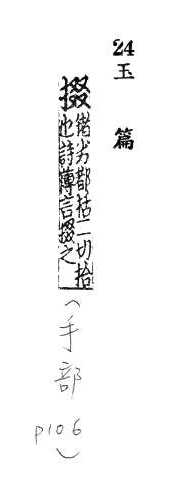 24 玉篇
掇 猪劣都括二切拾
也詩薄言掇之
(手部
p106)